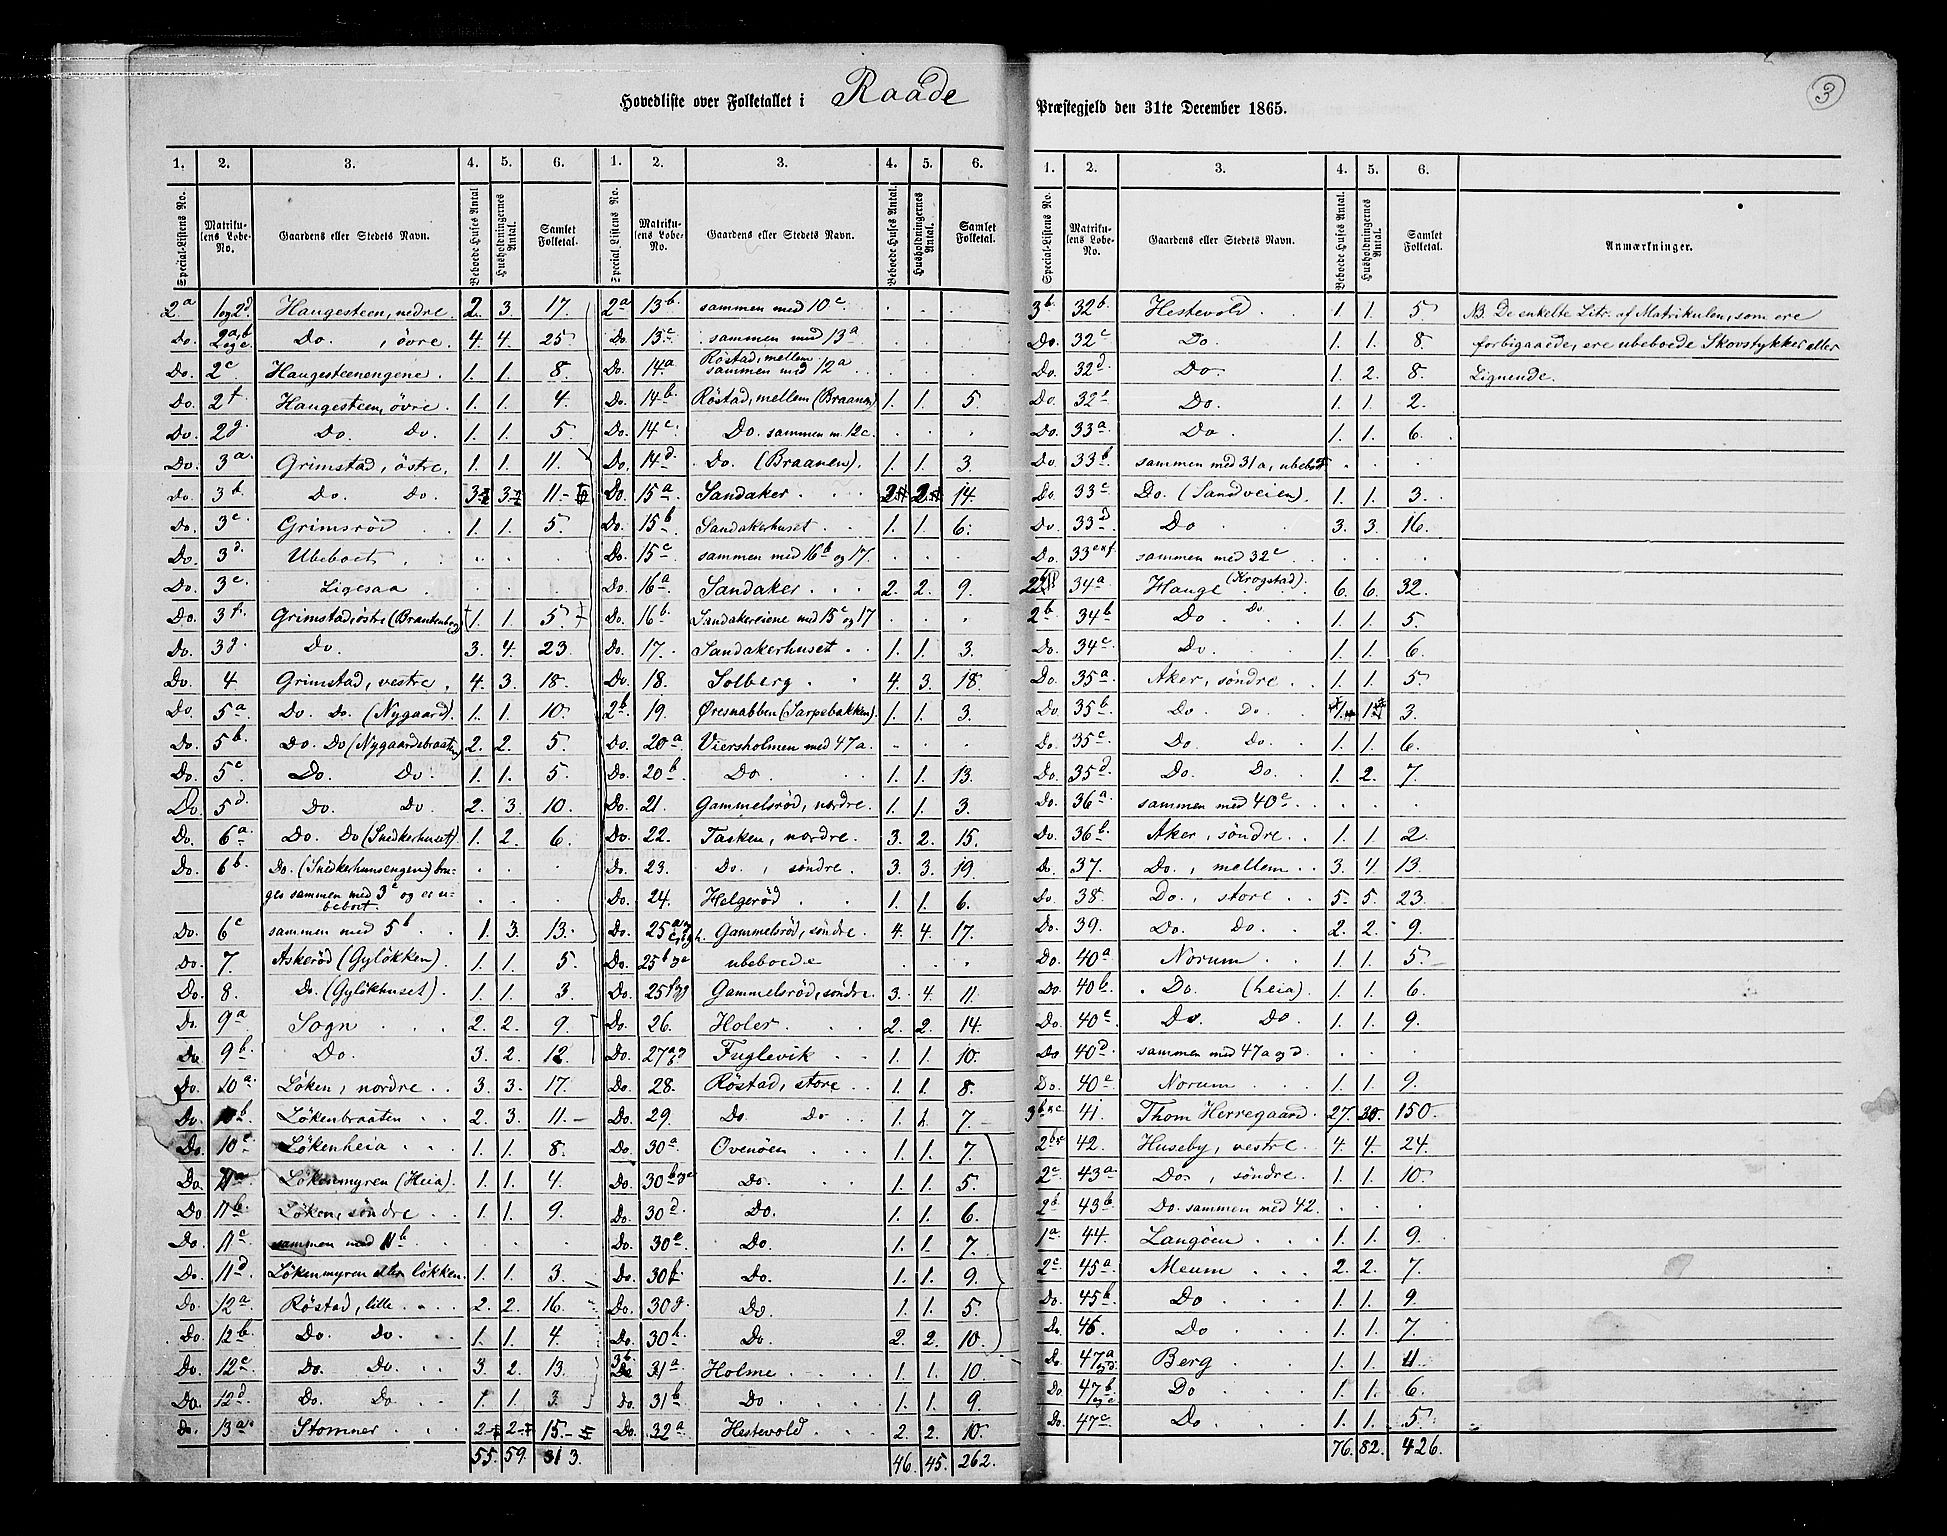 Hovedliste over Folketallet i Raade Præstegjeld den 31te December 1865.
3
1. 2. 3. 4. 5. 6. 1. 2. 3. 4. 5. 6.
Special-Listens No. Matrikulens Løbe-No. Gaardens eller Stedets Navn. Beboede Huses Antal Husholdningernes Antal. Samlet Folketal. Special-Listens No. Matrikulens Løbe-No. Gaardens eller Stedets Navn. Beboede Huses Antal. Husholdningernes Antal. Samlet Folketal.
2a 1og2d Haugesteen, nedre 2. 3. 17.
Do. 2a,b Do. , övre 4. 4. 25.
Do. 2c Haugesteenengene. 1. 1. 8.
Do. 2f. Haugesteen, övre. 1. 1. 4.
Do. 2g. Do. Do. 1. 1. 5.
Do. 3a. Grimstad, östre, 1. 1. 11.
Do. 3b. Do. Do. 3 3 11
Do. 3c Grimsröd 1. 1. 5.
Do. 3d. Ubeboet . . .
Do. 3e. Ligesaa . . .
Do. 3f. Grimstad, östre (Brantenberg) 1. 1. 5.
Do. 3g. Do. 3. 4. 23.
Do. 4. Grimstad, vestre 4. 3. 18.
Do. 5a. Do. Do. (Nygaard). 1. 1. 10.
Do. 5b. Do. Do (Nygaardsbraaten) 2. 2. 5.
Do. 5c Do. Do. 1. 1. 5.
Do. 5d. Do. Do. 2. 3. 10.
Do. 6a Do. Do (Snedkerhuset) 1. 2. 6.
Do. 6b. Do. (Snedkerhusengen) bru-
ges sammen med 3e og er u-
beboet.
Do. 6c sammen med 5b. 1. 3. 13.
Do. 7. Askeröd (Gylökken). 1. 1. 5.
Do. 8. Do. (Gylökhuset). 1. 1. 3.
Do. 9a Sogn 2. 2. 9.
Do. 9b. Do. 3. 2. 12.
Do. 10a. Löken, nordre 3. 3. 17.
Do. 10b Lökenbraaten 2. 3. 11.
Do. 10c Lökenheia 1. 1. 8.
Do. 11a Lökenmyren (Heia) 1. 1. 4.
Do. 11b. Löken, söndre 1. 1. 9.
Do. 11c sammen med 11b . . .
Do. 11d. Lökenmyren eller lökken. 1. 1. 3.
Do. 12a Röstad, lille 2. 2. 16.
Do. 12b. Do. Do. 1. 1. 4.
Do. 12c Do. Do. 3. 2. 13.
Do. 12d Do. Do. 1. 1. 3.
Do. 13a Stomner 2 2 15.
55. 59. 313.
2a 13b. sammen med 10c . . .
Do. 13c. sammen med 13a . . .
Do. 14a Röstad, mellem
sammen med 12a . . .
Do. 14b. Röstad, mellem (Braanen) 1. 1. 5.
Do. 14c. Do. sammen m. 12c. . . .
Do. 14d. Do. (Braanen). 1. 1. 3.
Do. 15a Sandaker 2 2 14.
Do. 15b Sandakerhuset 1. 1. 6.
Do. 15c sammen med 16b og 17. . . .
Do. 16a Sandaker 2. 2. 9.
Do. 16b. Sandakereiene med 15c og 17 . . .
Do. 17. Sandakerhuset 1. 1. 3.
Do. 18. Solberg 4. 3. 18.
2b. 19. Øresnabben (Sarpebakken). 1. 1. 3.
Do. 20a Viersholmen med 47a. . . .
Do. 20b Do. 1. 1. 13.
Do. 21. Gammelsröd, nordre. 1. 1. 3.
Do. 22. Tasken, nordre. 3. 2. 15.
Do. 23. Do. , söndre. 3. 3. 19.
Do. 24. Helgeröd 1. 1. 6.
Do. 25a Gammelsröd, söndre. 4. 4. 17.
Do. 25b ubeboede . . .
Do. 25 Gammelsröd, söndre. 3. 4. 11.
Do. 26. Holer 2. 2. 14.
Do. 27 Fuglevik 1. 1. 10.
Do. 28. Röstad, store 1. 1. 8.
Do. 29. Do. Do 1. 1. 7.
Do. 30a Ovenöen 1. 1. 7.
Do. 30b Do. 1. 1. 5.
Do. 30d. Do. 1. 1. 6.
Do. 30e. Do. 1. 1. 7.
Do. 30f. Do. 1. 1. 9.
Do. 30g. Do. 1. 1. 5.
Do. 30h. Do. 2. 2. 10.
3b. 31a Holme 1. 1. 10.
Do. 31b Do. 1. 1. 9.
Do. 32a Hestevold 2. 2. 10.
46. 45. 262.
1. 2. 3. 4. 5. 6.
Special-Listens No. Matrikulens Løbe-No. Gaardens eller Stedets Navn. Beboede Huses Antal. Husholdningernes Antal. Samlet Folketal. Anmærkninger.
3b. 32b. Hestevold. 1. 1. 5 NB. De enkelte Litr. af Matrikulen, som ere
Do. 32c Do. 1. 1. 8 forbigaaede, ere ubeboede Skovstykker eller
Do. 32d. Do. 1. 2. 8. Lignende.
Do. 32e Do. 1. 1. 2.
Do. 33a. Do. 1. 1. 6.
Do. 33b sammen med 31a, ubeboet . . .
Do. 33c Do. (Sandveien). 1. 1. 3.
Do. 33d Do. 3. 3. 16.
Do. 33e sammen med 32c . . .
34a Hauge (Krogstad) 6. 6. 32.
2b. 34b Do. Do. 1. 1. 5.
Do. 34c. Do. 1. 1. 6.
Do. 35a Aker, söndre 1. 1. 5.
Do. 35b. Do. Do. 1 1 3.
Do. 35c Do. Do. 1. 1. 6.
Do. 35d. Do. Do. 1. 2. 7.
Do. 36a. sammen med 40c . . .
Do. 36b. Aker, söndre 1. 1. 2.
Do. 37. Do., mellem 3. 4. 13.
Do. 38. Do., store 5. 5. 23.
Do. 39. Do. Do. 2. 2. 9.
Do. 40a Norum 1. 1. 5.
Do. 40b. Do. (heia). 1. 1. 6.
Do. 40c Do. Do. 1. 1. 9.
Do 40d. sammen med 47a og d. . . .
Do. 40e Norum 1. 1. 9.
3b 41. Thom Herregaard. 27. 30. 150.
2b 42. Huseby, vestre 4. 4. 24.
2c 43a Do., söndre 1. 1. 10.
2b. 43b. Do. sammen med 42. . . .
1a 44. Langöen 1. 1. 9.
2c. 45a. Meum 2. 2. 7.
Do. 45b. Do. 1. 1. 9.
Do. 46. Do 1. 1. 7.
Do. 47a Berg 1. 1. 11.
Do. 47b Do 1. 1. 6.
Do. 47c. Do. 1. 1. 5.
76. 82. 426.